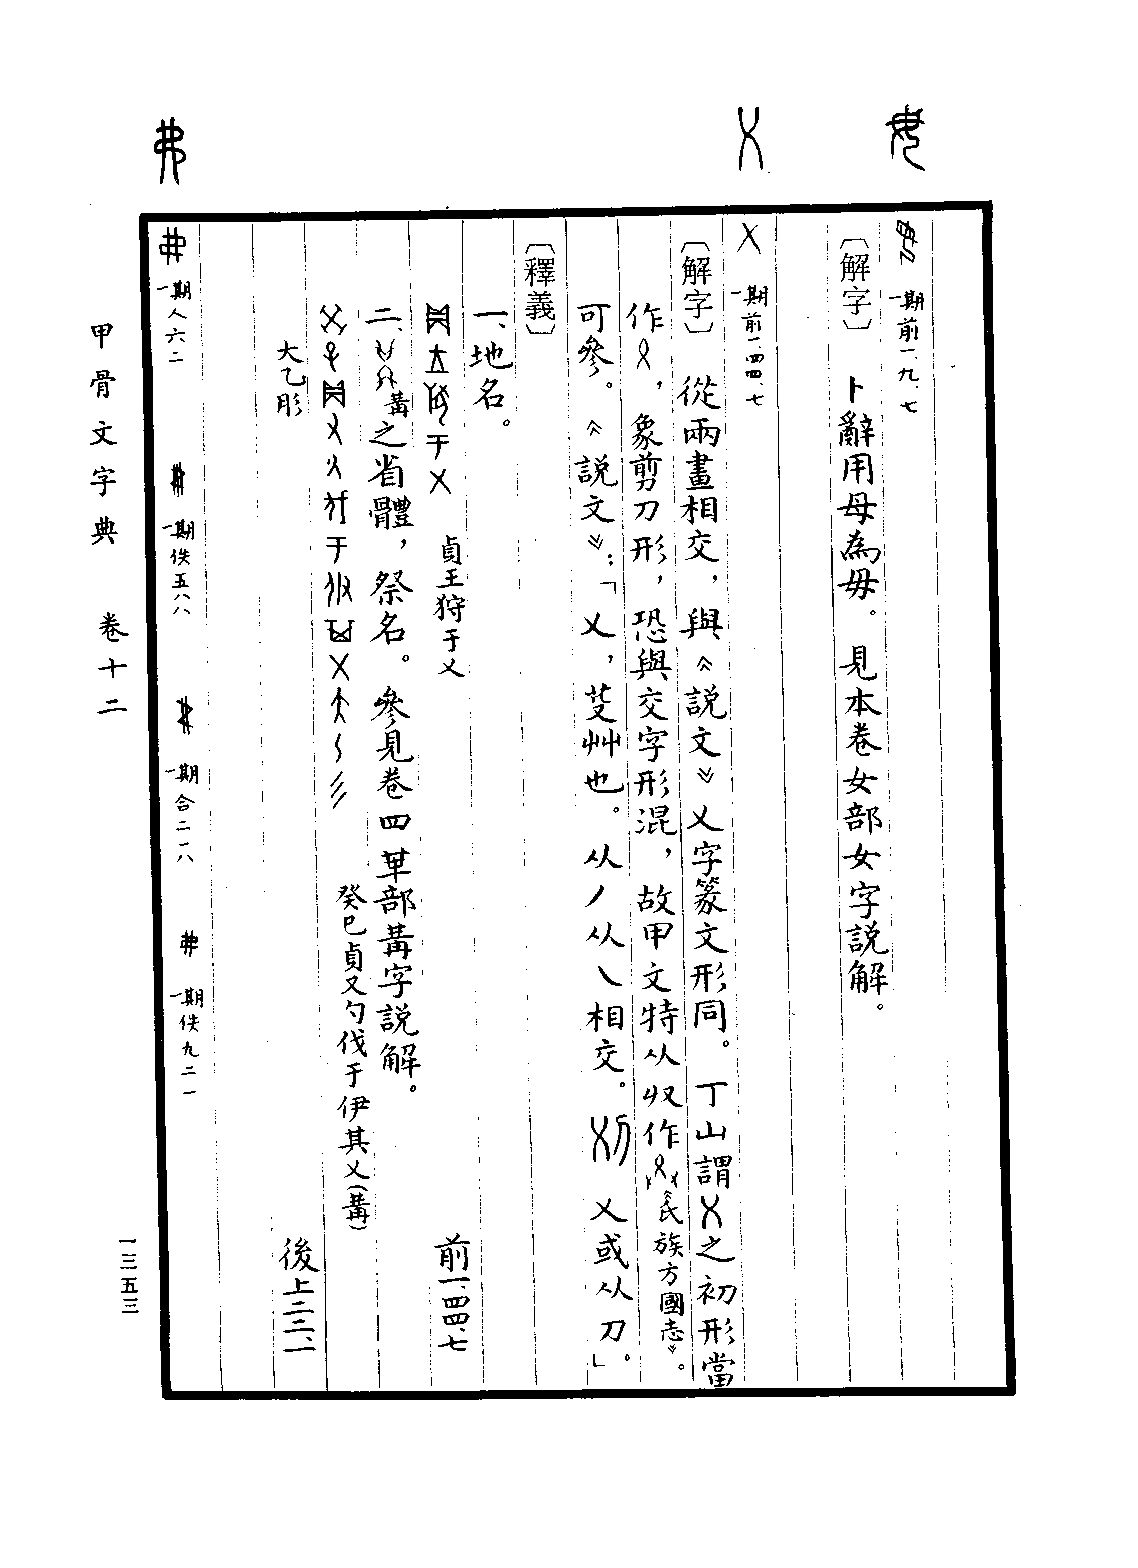 一期前一九.七
〔解字〕 卜辭用母為毋。見本卷女部女字說解。
一期前一.四四.七
〔解字〕 從兩畫相交,與《說文》乂字篆文形同。丁山謂之初形當
作,象剪刀形,恐與交字形混,故甲文特从収作《氏族方國志》。
可參。《說文》:「乂,芟艸也。从丿从乀相交。 乂或从刀」。
〔釋義〕
一、地名。
貞王狩于乂 前一.四四.七
二、冓之省體,祭名。參見卷四冓部冓字說解。
癸巳貞又勺伐于伊其乂(冓)
大乙肜 後上二二.一
一期人六二 一期佚五八八 一期合二一八 一期佚九二一
甲骨文字典 卷十二
一三五三